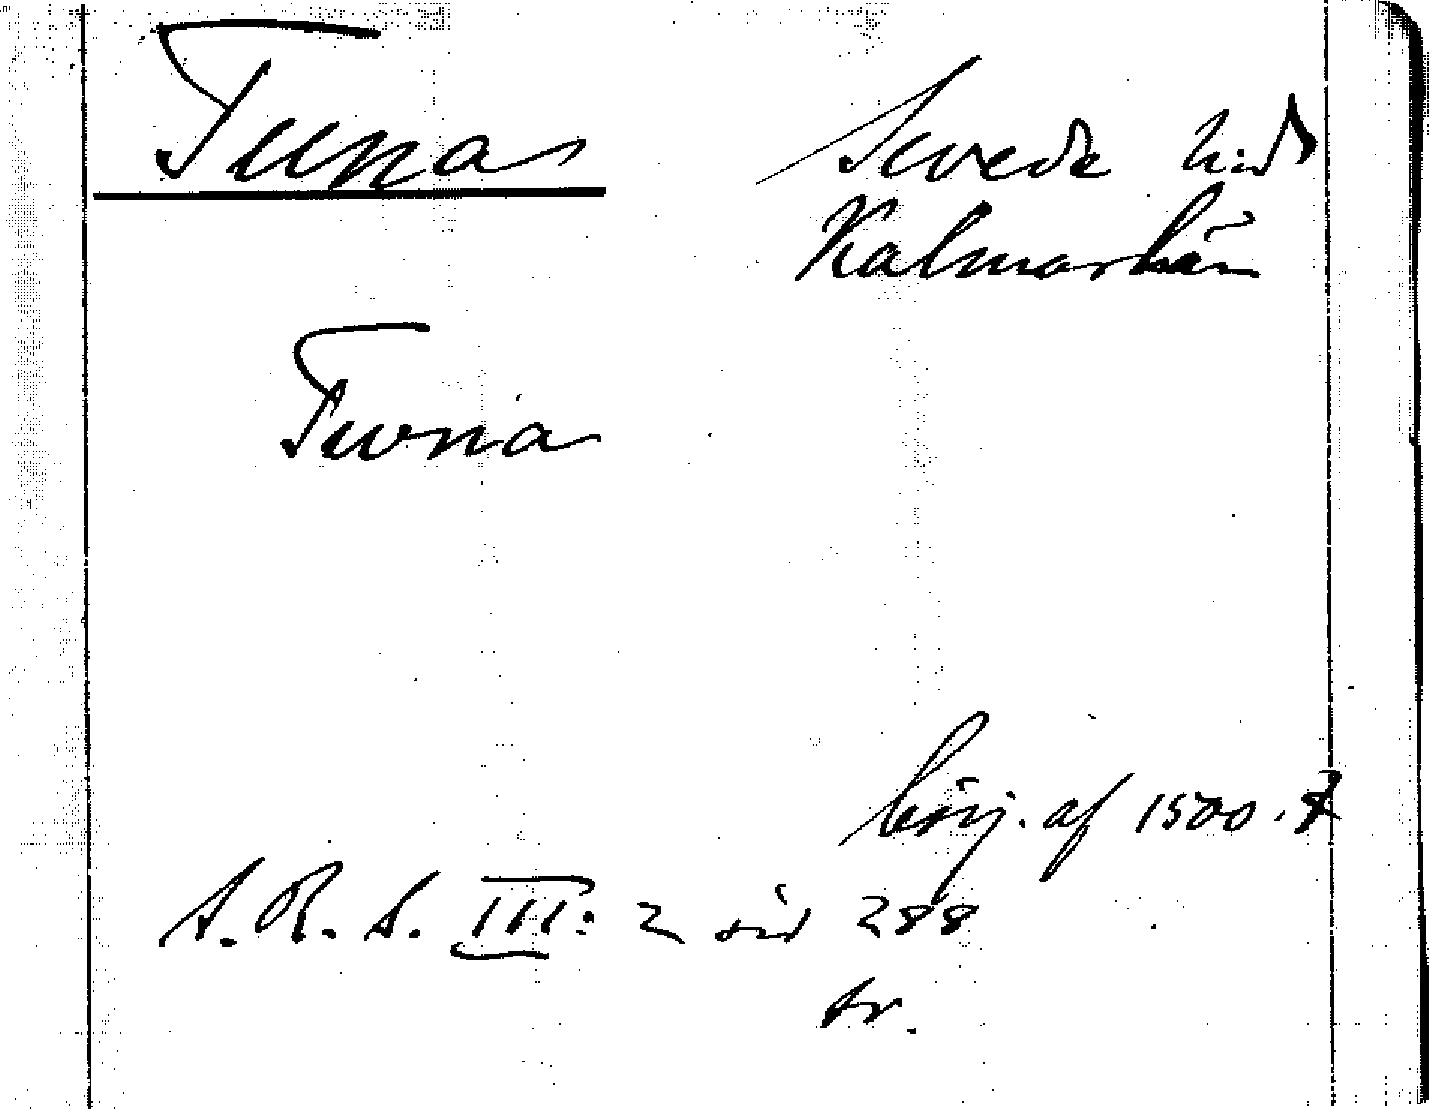 Tuna Sevede hd
Kalmar län
Twna
börj. af 1500.t
S.R.S. III: 2 sid 288
tr.